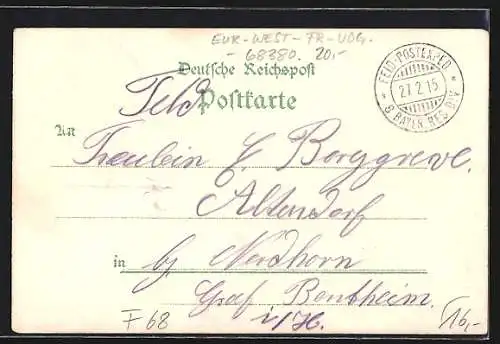 EUR-WEST-FR-VDG.
- 68380. 20,-
Deutsche Reichspost
Feld Postkarte
FELD-POSTEXPED
27.2.15
* 6 BAYER. RES. DIV. *
An
Fräulein E. Borggreve.
Altendorf
in b/ Nordhorn
Graf. Bentheim.
F 68
16,-